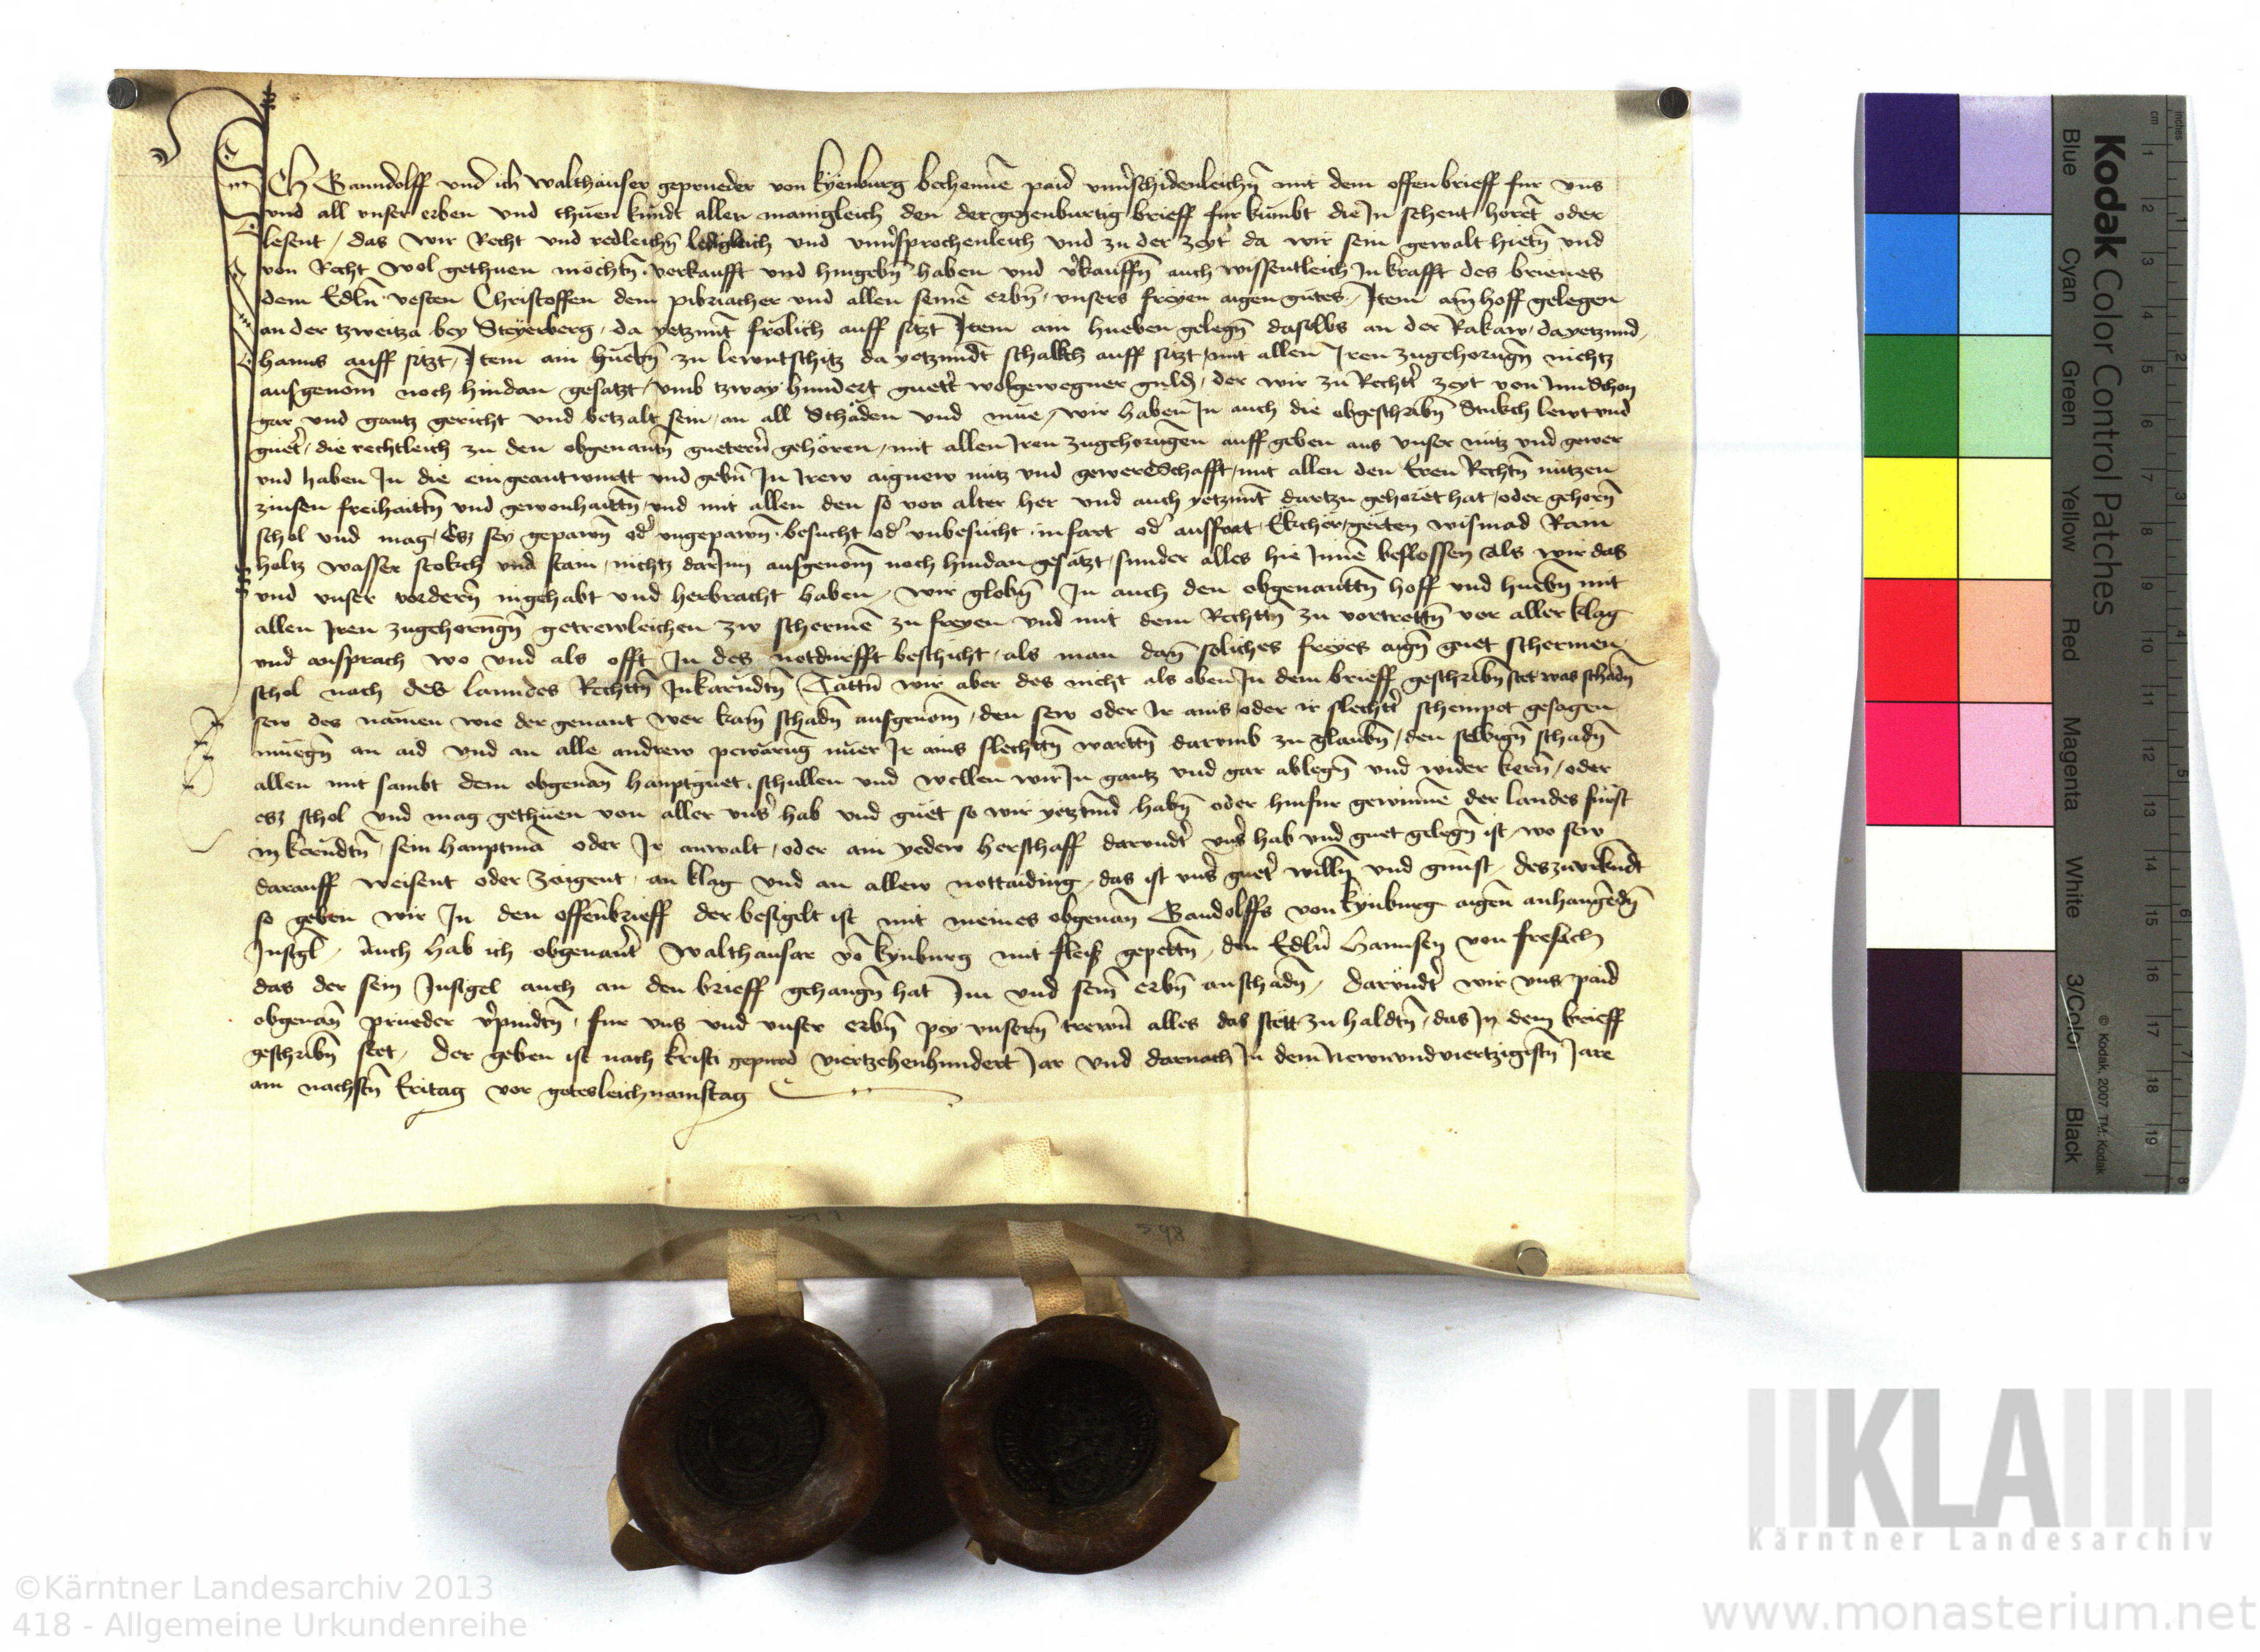 Ich Ganndolff vnd ich walthauser geprueder von kyenburg bechenne paid vnuerschidenleichn mit dem offen brieff fur vns
vnd all vnser erben vnd thuen kundt allen manigleich den der gegenburtig brieff fur kumbt die Jn sehent horet oder
lesent / das wir Recht vnd redleichn ledigleich vnd vnuersprochenleich vnd zu der zeyt da wir sein gewalt hietn vnd
von Recht wol gethuen mochtn verkaufft vnd hingebn haben vnd verkauffn auch wissentleich Jn krafft des brieues
dem Edln vesten Christoffen dem pibriacher vnd allen seine erbn / vnsers freyen aigen gutes / Item ain hoff gelegen
an der tzweitza bey Steyerberg / da yetzunt frolich auff sitzt Item ain hueben gelegn daselbs an der Rakaw / da yetzund
hanns auff sitzt / Item ain huebn zu lewntschitz da yetzundt schalkh auff sitzt / mit allen Jren zugehorugn nichtz
ausgenom noch hindan gesatzt / vmb tzway hundert guetter wolgewegner guld / der wir zu Rechter zeyt von Im schon
gar vnd gantz gericht vnd betzalt sein / an all Schaden vnd mue / wir haben Jn auch die obgeschribn Stukch lewt vnd
guet / die rechtleich zu den obgenantn guetern gehoren / mit allen Jren zugehorungen auff geben aus vnser nutz vnd gewer
vnd haben Jn die eingeantwurtt vnd gebn Jn Jrew aignew nutz vnd gewerdschafft / mit allen den Eren Rechtn nutzen
zinsen freihaittn vnd gewonhaittn / vnd mit allen den so von alter her vnd auch yetzunt dartzu gehoret hat / oder gehorn
schol vnd mag / Es sey gepawn oder vngepawn besucht oder vnbesucht infart oder ausfart Ekcher / gerten wismad Rain
holtz wasser stokch vnd stain / nichtz darJnn ausgenom noch hindan gesatzt / sunder alles hie Jnne beslossen als wir das
vnd vnser vordern ingehabt vnd herbracht haben / wir globn Jn auch den obgenanttn hoff vnd huebn mit
allen Jren zugehorungn getrewleichen zw scherme zu freyen vnd mit dem Rechttn zu vortrettn vor aller klag
vnd ansprach wo vnd als offt Jn des notdurfft beschicht / als man dan soliches freyes aign guet schermen
schol nach des lanndes Rechttn Jn karndtn Tattn wir aber des nicht als oben Jn dem brieff geschribn stet was schadn
sew des namen wie der genant wer kain schadn ausgenom / den sew oder Jr ains / oder ir slechter schempot gesagen
muegn an aid vnd an alle andrew pewarung nuer Jr ains slechttn wartn darumb zu glaubn / den selbign schadn
allen mit sambt dem obgenan hauptguet schullen vnd wellen wir Jn gantz vnd gar ablegn vnd wider kern / oder
es schol vnd mag gethuen von aller vnser hab vnd guet so wir yetzund habn oder hinfur gewinne der landes furst
in kerndtn / sein hauptma oder Jr anwalt / oder ain yedew herschaff darundter vnser hab vnd guet gelegn ist / wo sew
darauff weisent oder zaigent an klag vnd an allew nottaiding / das ist vnser guet willn vnd gunst / des zu vrkundt
so geben wir Jn den offenbrieff der besigelt ist mit meines obgenan Gandolffs von kynburg aigen anhangedn
Jnsigl / Auch hab ich obgenanter Walthauser von kynburg mit fleis gepettn / den Edln hannsen von fresach
das der sein Jnsigel auch an den brieff gehangn hat Jm vnd sein erbn anschadn / darundter wir vns paid
obgenan prueder verpindtn / fur vns vnd vnser erbn pey vnsern trewn alles das stett zu haldtn / das Jn dem brieff
geschribn stet / der geben ist nach kristi gepurd viertzehenhundert Jar vnd darnach Jn dem Newnvndviertzigistn Jare
am nachstn Eritag vor gotesleichnamstag
598
Kodak Color Control Patches
Blue Cyan Green Yellow Red Magenta White 3/Color Black
© Kodak, 2007 TM: Kodak
cm 1 2 3 4 5 6 7 8 9 10 11 12 13 14 15 16 17 18 19
inches 1 2 3 4 5 6 7 8
KLA
Kärntner Landesarchiv
©Kärntner Landesarchiv 2013
418 - Allgemeine Urkundenreihe
www.monasterium.net